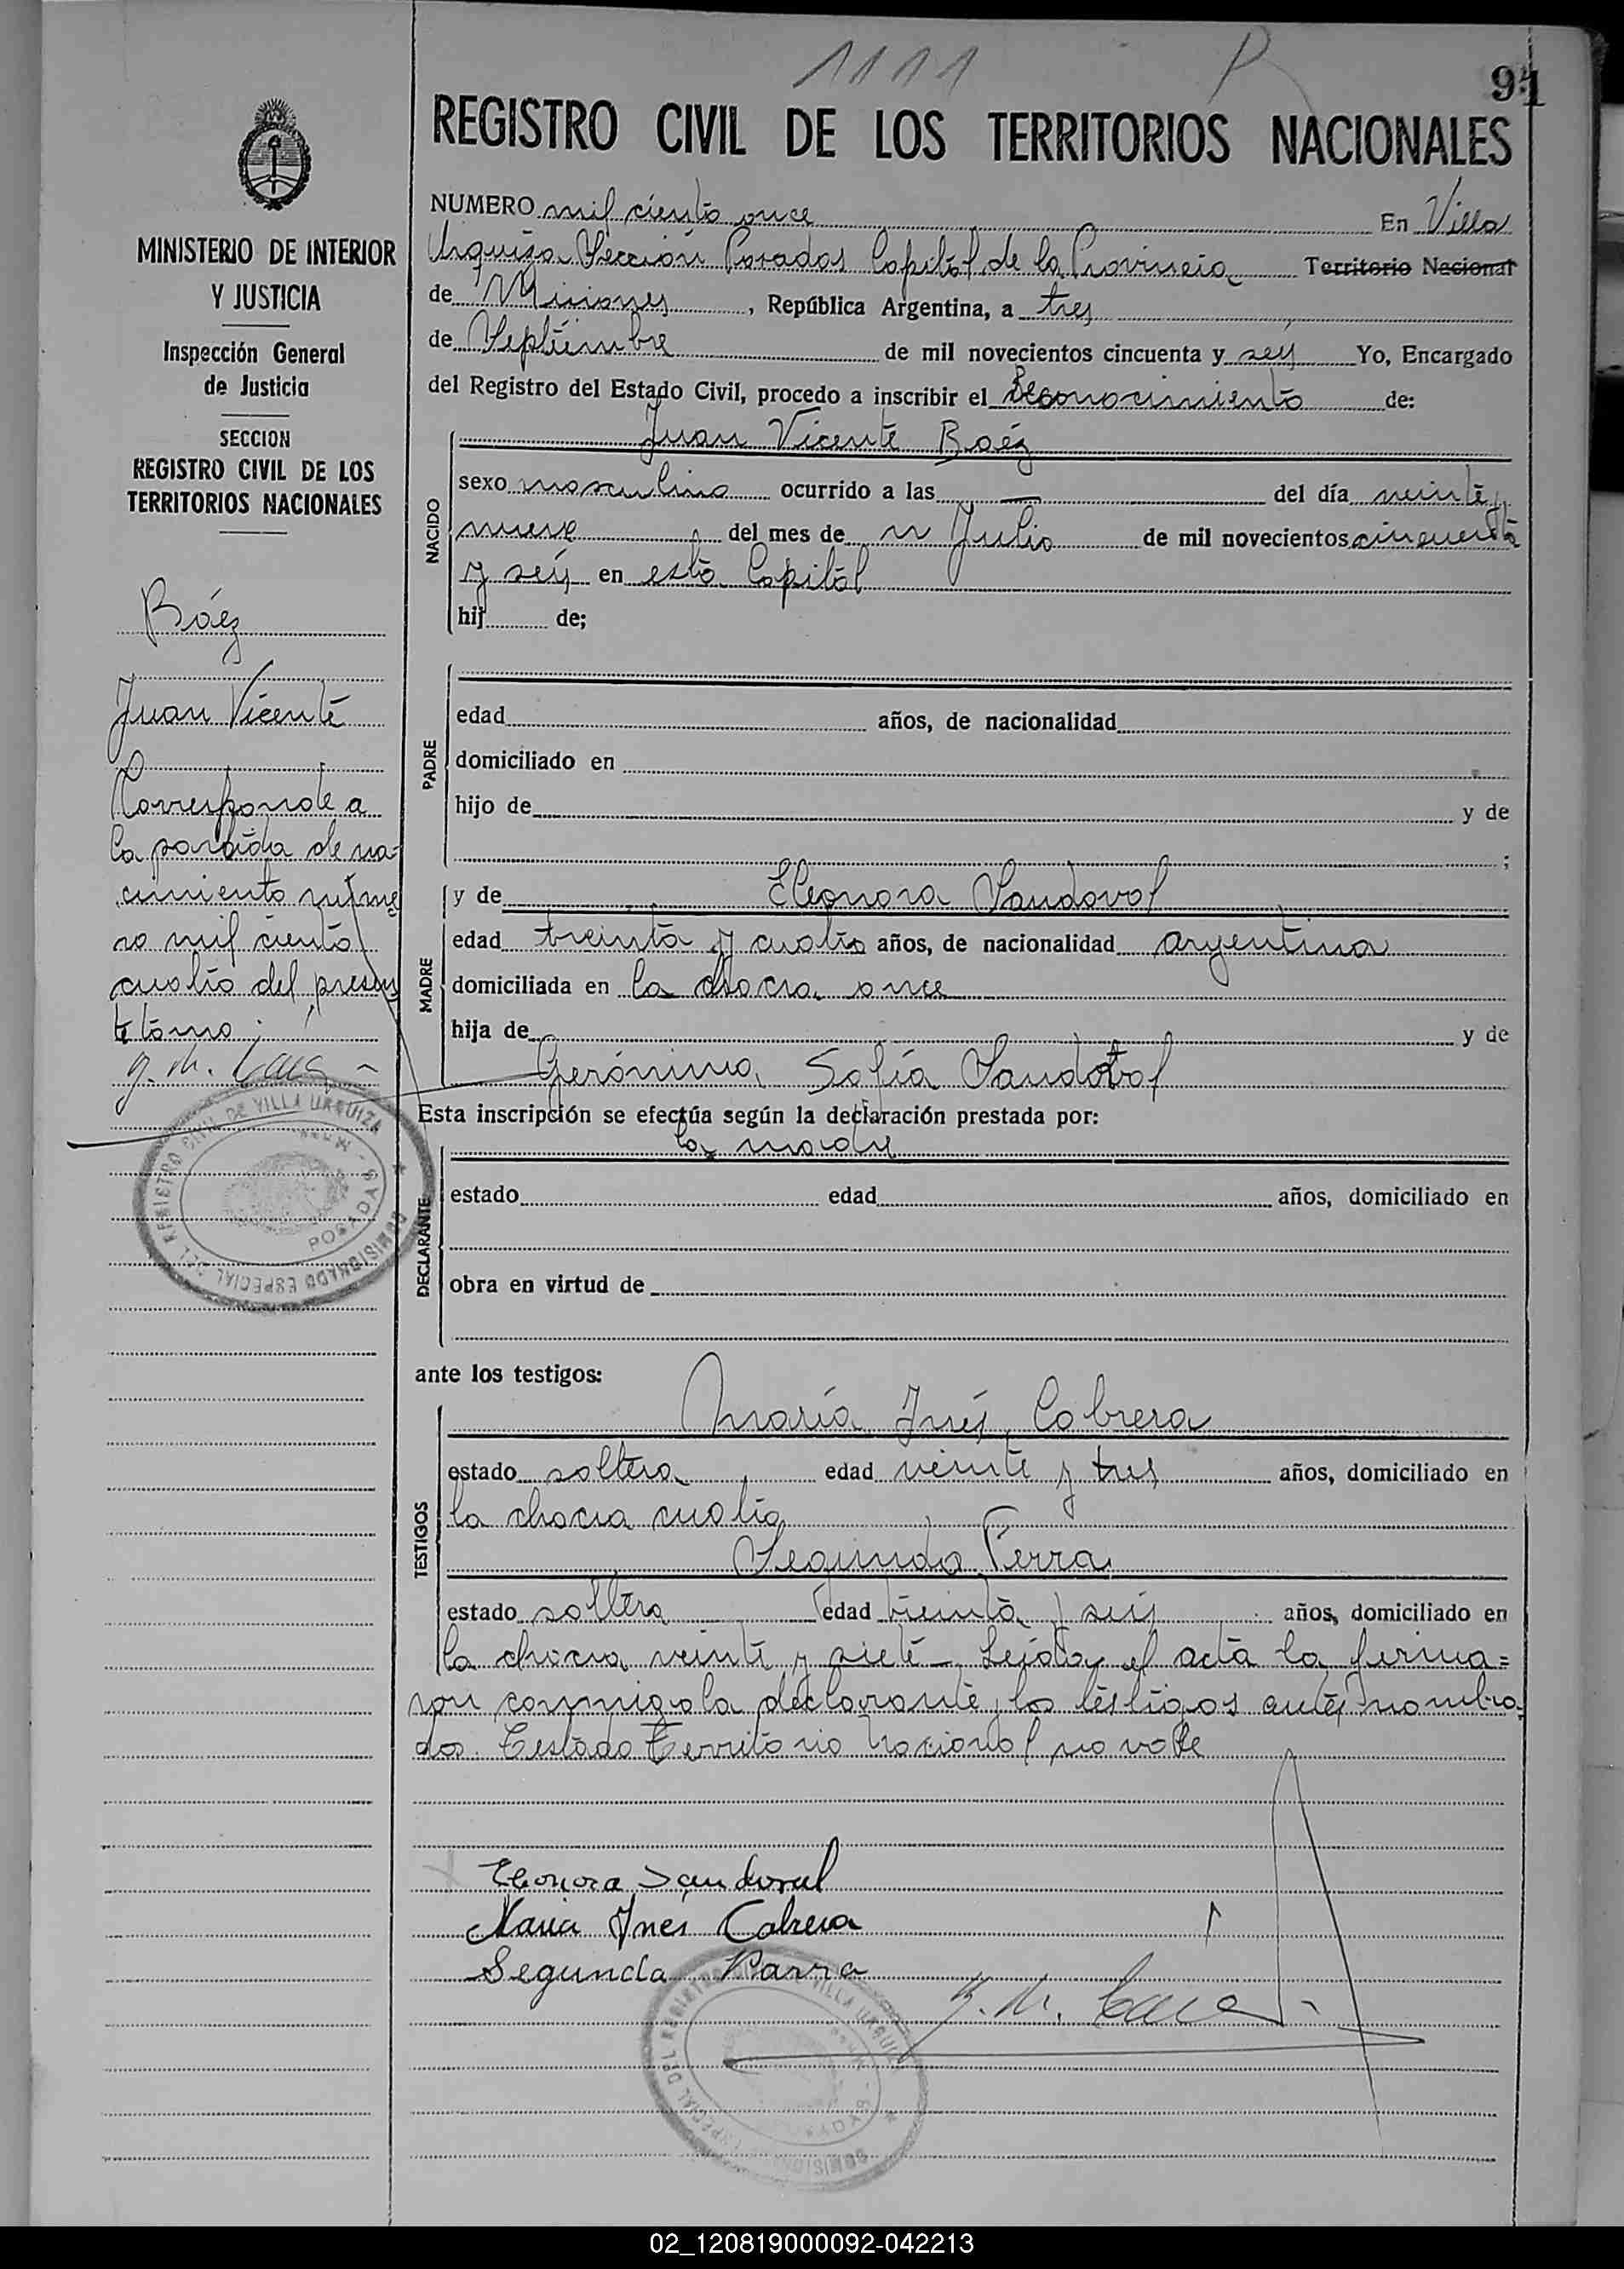 1111
P
91
REGISTRO CIVIL DE LOS TERRITORIOS NACIONALES
MINISTERIO DE INTERIOR
Y JUSTICIA
Inspección General
de Justicia
SECCION
REGISTRO CIVIL DE LOS
TERRITORIOS NACIONALES
Báez
Juan Vicente
Corresponde a
la partida de na-
cimiento núme
ro mil ciento
cuatro del presen
te tomo.
NUMERO mil ciento once En Villa
Urquiza Sección Posadas Capital de la Provincia Territorio Nacional
de Misiones, República Argentina, a tres
de Septiembre de mil novecientos cincuenta y seis Yo, Encargado
del Registro del Estado Civil, procedo a inscribir el Reconocimiento de:
NACIDO
Juan Vicente Baéz
sexo masculino ocurrido a las — del día veinte y
nueve del mes de Julio de mil novecientos cincuenta
y seis en esta Capital
hij de;
PADRE
edad años, de nacionalidad
domiciliado en
hijo de y de
;
MADRE
y de Eleonora Sandoval
edad treinta y cuatro años, de nacionalidad argentina
domiciliada en la chacra once
hija de y de
Gerónima Sofía Sandoval
Esta inscripción se efectúa según la declaración prestada por:
DECLARANTE
la madre
estado edad años, domiciliado en
obra en virtud de
ante los testigos:
TESTIGOS
María Inés Cabrera
estado soltera edad veinte y tres años, domiciliado en
la chacra cuatro
Segunda
estado soltera edad treinta y seis años, domiciliado en
la chacra veinte y siete — Leída el acta la firma=
ron conmigo la declarante y los testigos antes nombra-
dos. Testado Territorio Nacional no vale
Eleonora Sandoval
Maria Ines Cabrera
Segunda Parra
DEL REGISTRO CIVIL DE VILLA URQUIZA
COMISIONADO ESPECIAL
POSADAS
02_120819000092-042213